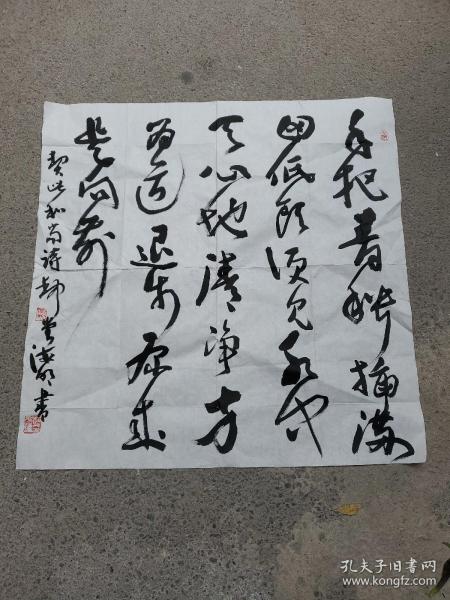 手把青秧插满
田低头便见水中
天心地清净方
为道退步原来
是向前
契此和尚诗 书
孔夫子旧书网
www.kongfz.com